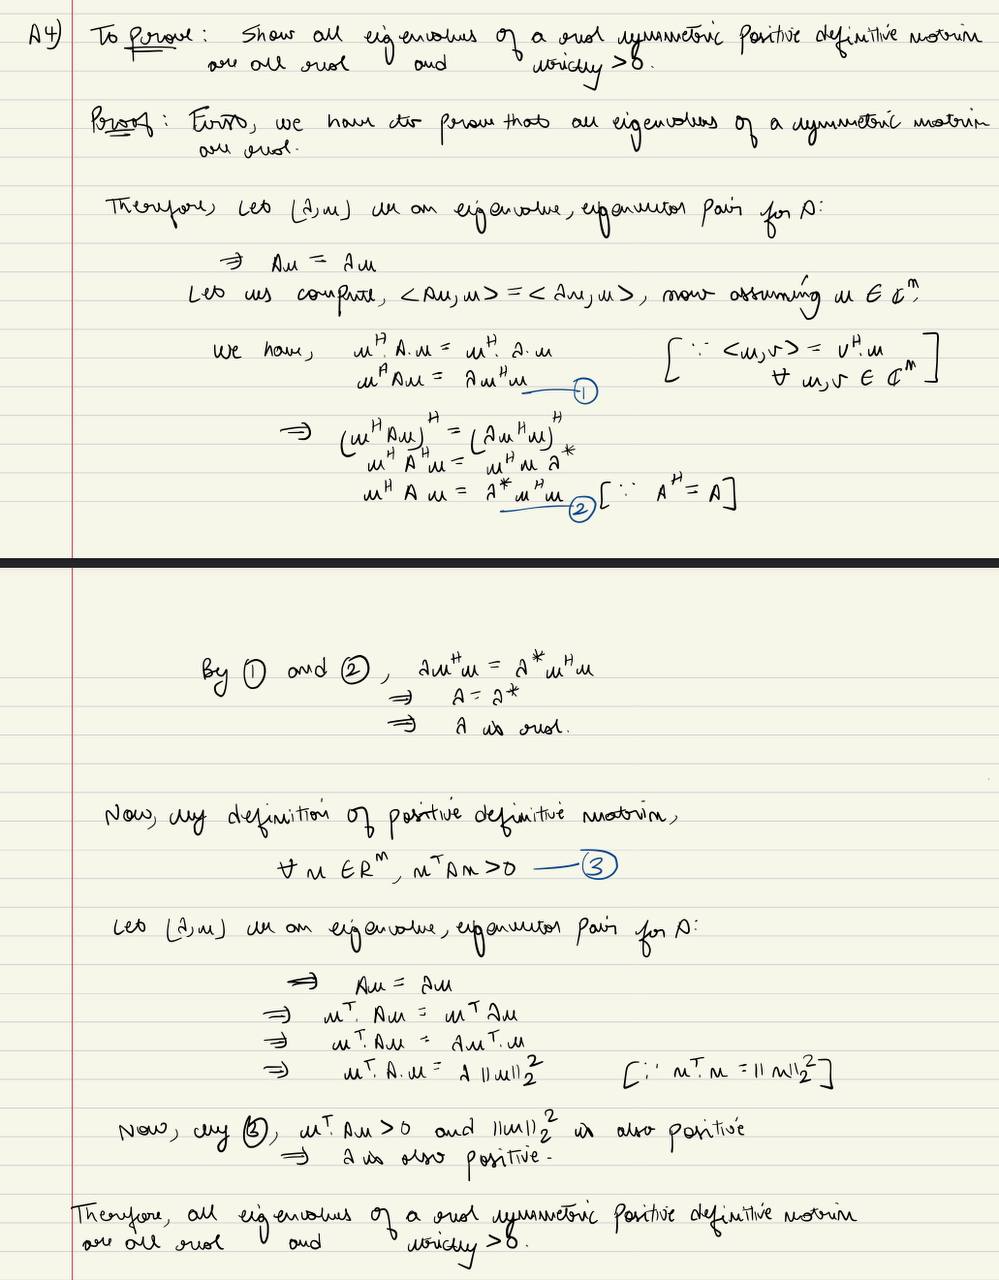 A4) To prove: Show all eigenvalues of a real symmetric positive definitive matrix
are all real and strictly >0.
Proof: First, we have to prove that all eigenvalues of a symmetric matrix
are real.
Therefore, Let (λ,u) be an eigenvalue, eigenvector pair for A:
⇒ Au = λu
Let us compute, <Au,u> = <λu,u>, now assuming u ∈ ℂⁿ.
We have, uᴴ. A.u = uᴴ. λ.u [∵ <u,v> = vᴴ.u
uᴴAu = λuᴴu ① ∀ u,v ∈ ℂⁿ]
⇒ (uᴴAu)ᴴ = (λuᴴu)ᴴ
uᴴAᴴu = uᴴu λ*
uᴴ A u = λ* uᴴu ② [∵ Aᴴ = A]
By ① and ②, λuᴴu = λ*uᴴu
⇒ λ = λ*
⇒ λ is real.
Now, by definition of positive definitive matrix,
∀ x ∈ Rⁿ, xᵀAx >0 ③
Let (λ,u) be an eigenvalue, eigenvector pair for A:
⇒ Au = λu
⇒ uᵀ. Au = uᵀλu
⇒ uᵀ. Au = λuᵀ.u
⇒ uᵀ. A.u = λ ||u||₂² [∵ xᵀ.x = ||x||₂²]
Now, by ③, uᵀ. Au >0 and ||u||₂² is also positive
⇒ λ is also positive.
Therefore, all eigenvalues of a real symmetric positive definitive matrix
are all real and strictly >0.